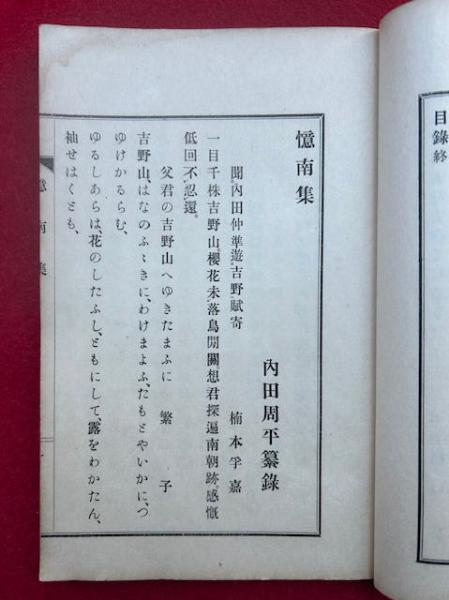 目錄終
憶南集
內田周平纂錄
聞內田仲準遊吉野賦寄　楠本孚嘉
一目千株吉野山。櫻花未落鳥閒關。想君探遍南朝跡。感慨
低回不忍還。
父君の吉野山へゆきたまふに　繁子
吉野山、はなのふゝきに、わけまよふ、たもとやいかに、つ
ゆけかるらむ、
ゆるしあらは、花のしたふし、ともにして、露をわかたん、
袖せはくとも、
憶南集
一